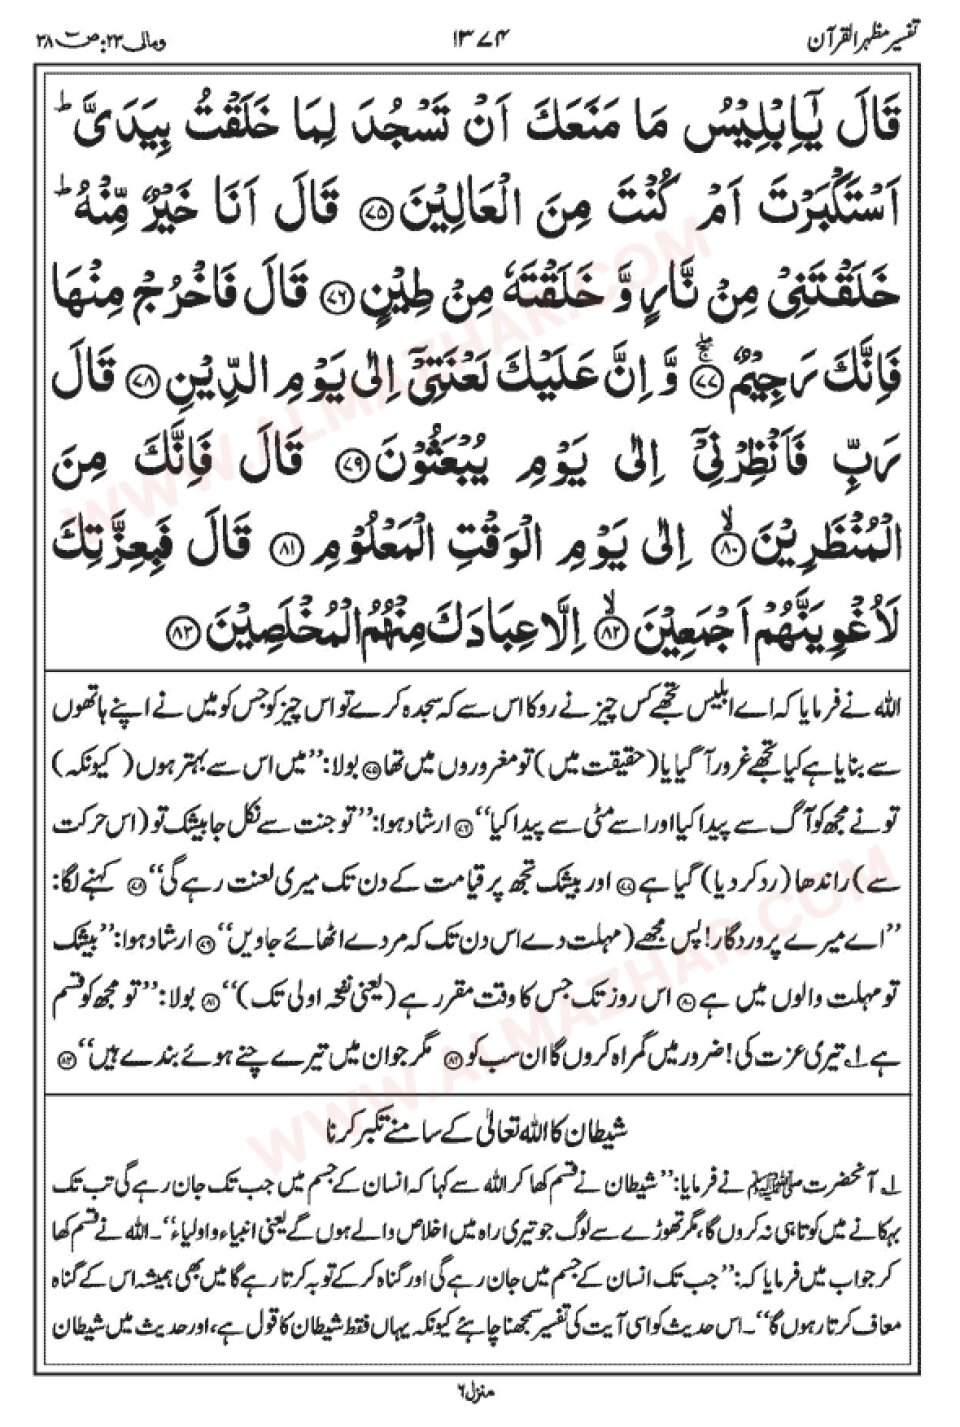 تفسیر مظہر القرآن
۱۳۷۴
ومالی ۲۳: ص ۳۸
قَالَ يٰٓاِبْلِيْسُ مَا مَنَعَكَ اَنْ تَسْجُدَ لِمَا خَلَقْتُ بِيَدَىَّ ؕ
اَسْتَكْبَرْتَ اَمْ كُنْتَ مِنَ الْعَالِيْنَ ﴿۷۵﴾ قَالَ اَنَا خَيْرٌ مِّنْهُ ؕ
خَلَقْتَنِىْ مِنْ نَّارٍ وَّ خَلَقْتَهٗ مِنْ طِيْنٍ ﴿۷۶﴾ قَالَ فَاخْرُجْ مِنْهَا
فَاِنَّكَ رَجِيْمٌ ﴿۷۷﴾ وَّ اِنَّ عَلَيْكَ لَعْنَتِىْٓ اِلٰى يَوْمِ الدِّيْنِ ﴿۷۸﴾ قَالَ
رَبِّ فَاَنْظِرْنِىْٓ اِلٰى يَوْمِ يُبْعَثُوْنَ ﴿۷۹﴾ قَالَ فَاِنَّكَ مِنَ
الْمُنْظَرِيْنَ ﴿۸۰﴾ اِلٰى يَوْمِ الْوَقْتِ الْمَعْلُوْمِ ﴿۸۱﴾ قَالَ فَبِعِزَّتِكَ
لَاُغْوِيَنَّهُمْ اَجْمَعِيْنَ ﴿۸۲﴾ اِلَّا عِبَادَكَ مِنْهُمُ الْمُخْلَصِيْنَ ﴿۸۳﴾
اللہ نے فرمایا کہ اے ابلیس تجھے کس چیز نے روکا اس سے کہ سجدہ کرے تو اس چیز کو جس کو میں نے اپنے ہاتھوں
سے بنایا ہے کیا تجھے غرور آ گیا یا (حقیقت میں) تو مغروروں میں تھا ﴿۷۵﴾ بولا: ’’میں اس سے بہتر ہوں (کیونکہ)
تو نے مجھ کو آگ سے پیدا کیا اور اسے مٹی سے پیدا کیا‘‘ ﴿۷۶﴾ ارشاد ہوا: ’’تو جنت سے نکل جا بیشک تو (اس حرکت
سے) راندھا (رد کر دیا) گیا ہے ﴿۷۷﴾ اور بیشک تجھ پر قیامت کے دن تک میری لعنت رہے گی‘‘ ﴿۷۸﴾ کہنے لگا:
’’اے میرے پروردگار! پس مجھے (مہلت دے اس دن تک کہ مردے اٹھائے جاویں‘‘ ﴿۷۹﴾ ارشاد ہوا: ’’بیشک
تو مہلت والوں میں ہے ﴿۸۰﴾ اس روز تک جس کا وقت مقرر ہے (یعنی نفخہ اولی تک)‘‘ ﴿۸۱﴾ بولا: ’’تو مجھ کو قسم
ہے ۱؎ تیری عزت کی! ضرور میں گمراہ کروں گا ان سب کو ﴿۸۲﴾ مگر جو ان میں تیرے چنے ہوئے بندے ہیں‘‘ ﴿۸۳﴾
شیطان کا اللہ تعالیٰ کے سامنے تکبر کرنا
۱؎ آنحضرت ﷺ نے فرمایا: ’’شیطان نے قسم کھا کر اللہ سے کہا کہ انسان کے جسم میں جب تک جان رہے گی تب تک
بہکانے میں کوتاہی نہ کروں گا، مگر تھوڑے سے لوگ جو تیری راہ میں اخلاص والے ہوں گے یعنی انبیاء و اولیاء‘‘۔ اللہ نے قسم کھا
کر جواب میں فرمایا کہ: ’’جب تک انسان کے جسم میں جان رہے گی اور گناہ کر کے توبہ کرتا رہے گا میں بھی ہمیشہ اس کے گناہ
معاف کرتا رہوں گا‘‘۔ اس حدیث کو اسی آیت کی تفسیر سمجھنا چاہئے کیونکہ یہاں فقط شیطان کا قول ہے، اور حدیث میں شیطان
منزل ۶
WWW.ALMAZHAR.COM
WWW.ALMAZHAR.COM